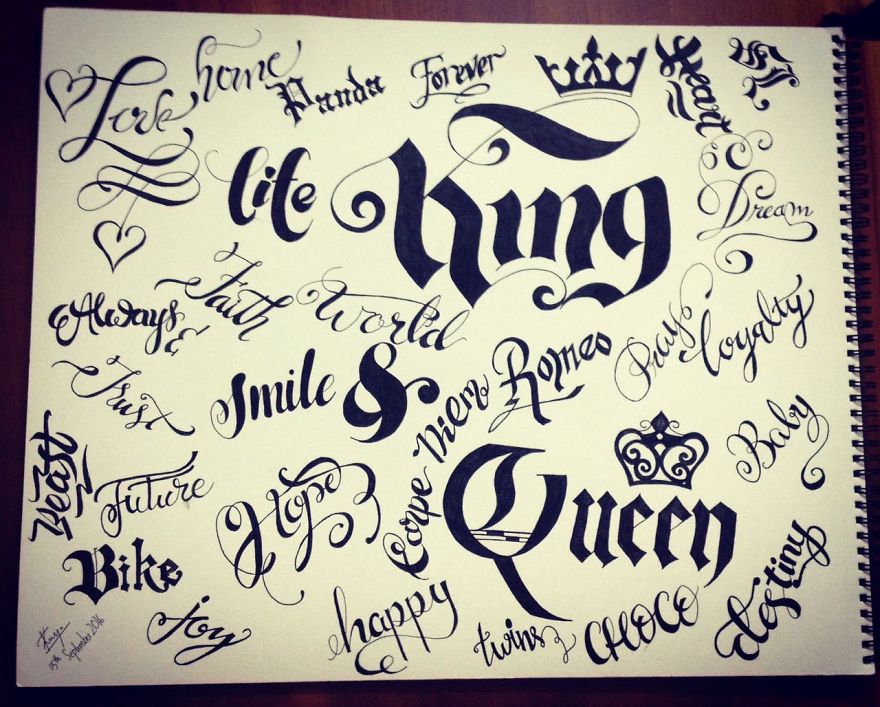 Love
home
Panda
Forever
Heart
life
King
Dream
Always
&
Faith
World
Pray
loyalty
Trust
Smile
&
Romeo
Carpe Diem
Beast
Future
Hope
Queen
Baby
Bike
joy
happy
twins
CHOCO
destiny
15th September 2016